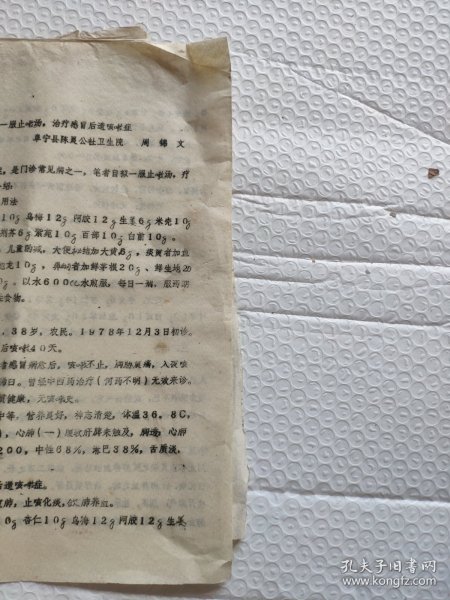 一服止咳汤，治疗感冒后遗咳嗽症
阜宁县陈良公社卫生院 周锦文
是门诊常见病之一，笔者自拟一服止咳汤，疗
用法
10g 乌梅12g 阿胶12g 生姜6g 米壳10g
荆芥6g 紫苑10g 百部10g 白前10g。
儿童酌减，大便秘结加大黄6g，痰黄者加
龙10g，鼻衄者加鲜茅根20g、鲜生地20
以水600cc水煎服，每日一剂，服药期
食物。
38岁，农民。1978年12月3日初诊。
后咳嗽40天。
者感冒痊愈后，咳嗽不止，胸胁莫痛，入夜咳
曾经中西药治疗（何药不明）无效来诊。
健康，无咳嗽史。
中等，营养良好，神志清楚，体温36.8C，
心肺（一）腹软肝脾未触及，胸透，心肺
200，中性68%，淋巴38%，舌质淡，
后遗咳嗽症。
肺，止咳化痰，敛肺养血。
0g 杏仁10g 乌梅12g 阿胶12g 生姜
孔夫子旧书网
www.kongfz.com